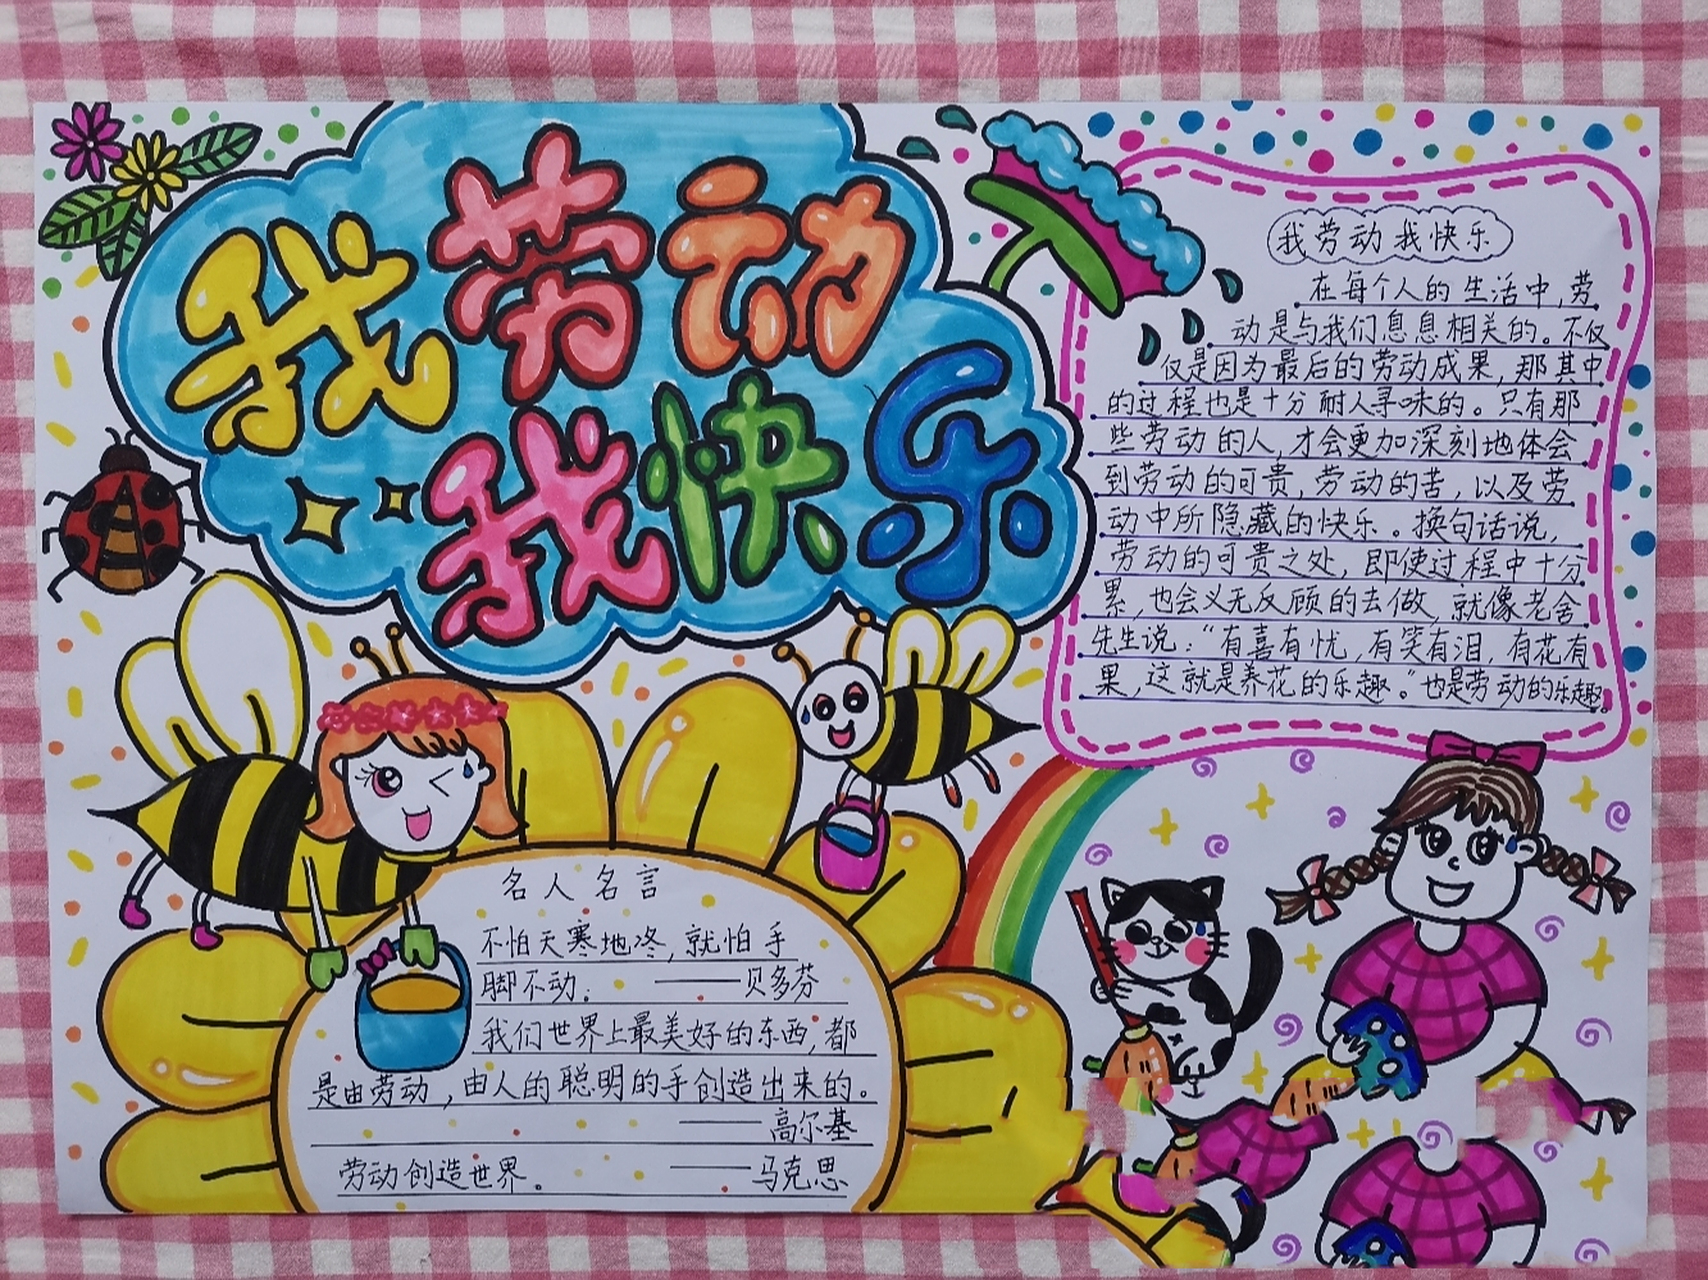 我劳动
我快乐
我劳动我快乐
在每个人的生活中,劳
动是与我们息息相关的。不仅
仅是因为最后的劳动成果,那其中
的过程也是十分耐人寻味的。只有那
些劳动的人,才会更加深刻地体会
到劳动的可贵,劳动的苦,以及劳
动中所隐藏的快乐。换句话说,
劳动的可贵之处,即使过程中十分
累,也会义无反顾的去做,就像老舍
先生说:“有喜有忧,有笑有泪,有花有
果,这就是养花的乐趣。”也是劳动的乐趣。
名人名言
不怕天寒地冻,就怕手
脚不动。——贝多芬
我们世界上最美好的东西,都
是由劳动,由人的聪明的手创造出来的。
——高尔基
劳动创造世界。——马克思